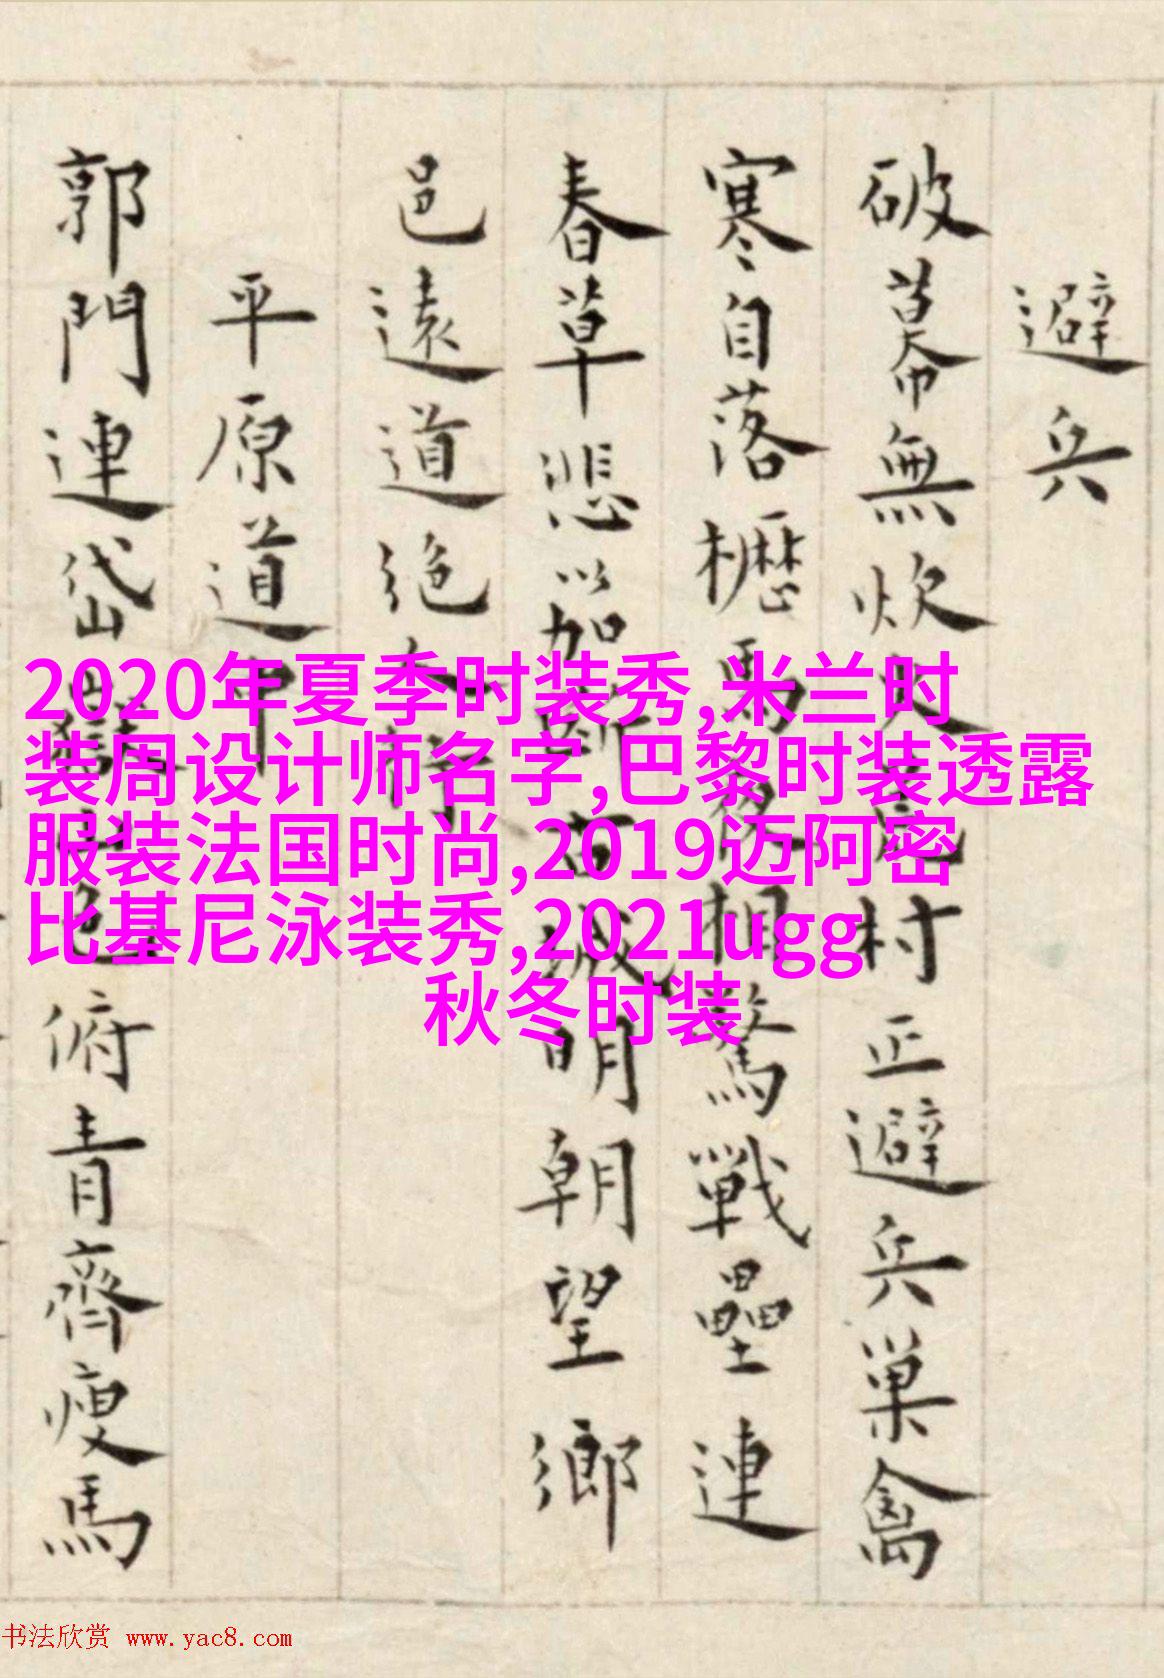 避兵
破幕無炊火村正避兵巢禽
寒自落櫪馬夜相驚戰壘連
春草悲笳斷古城明朝望鄉
邑遠道絶人行
平原道中
郭門連岱色俯青齊瘦馬
2020年夏季时装秀,米兰时
装周设计师名字,巴黎时装透露
服装法国时尚,2019迈阿密
比基尼泳装秀,2021ugg
秋冬时装
书法欣赏 www.yac8.com